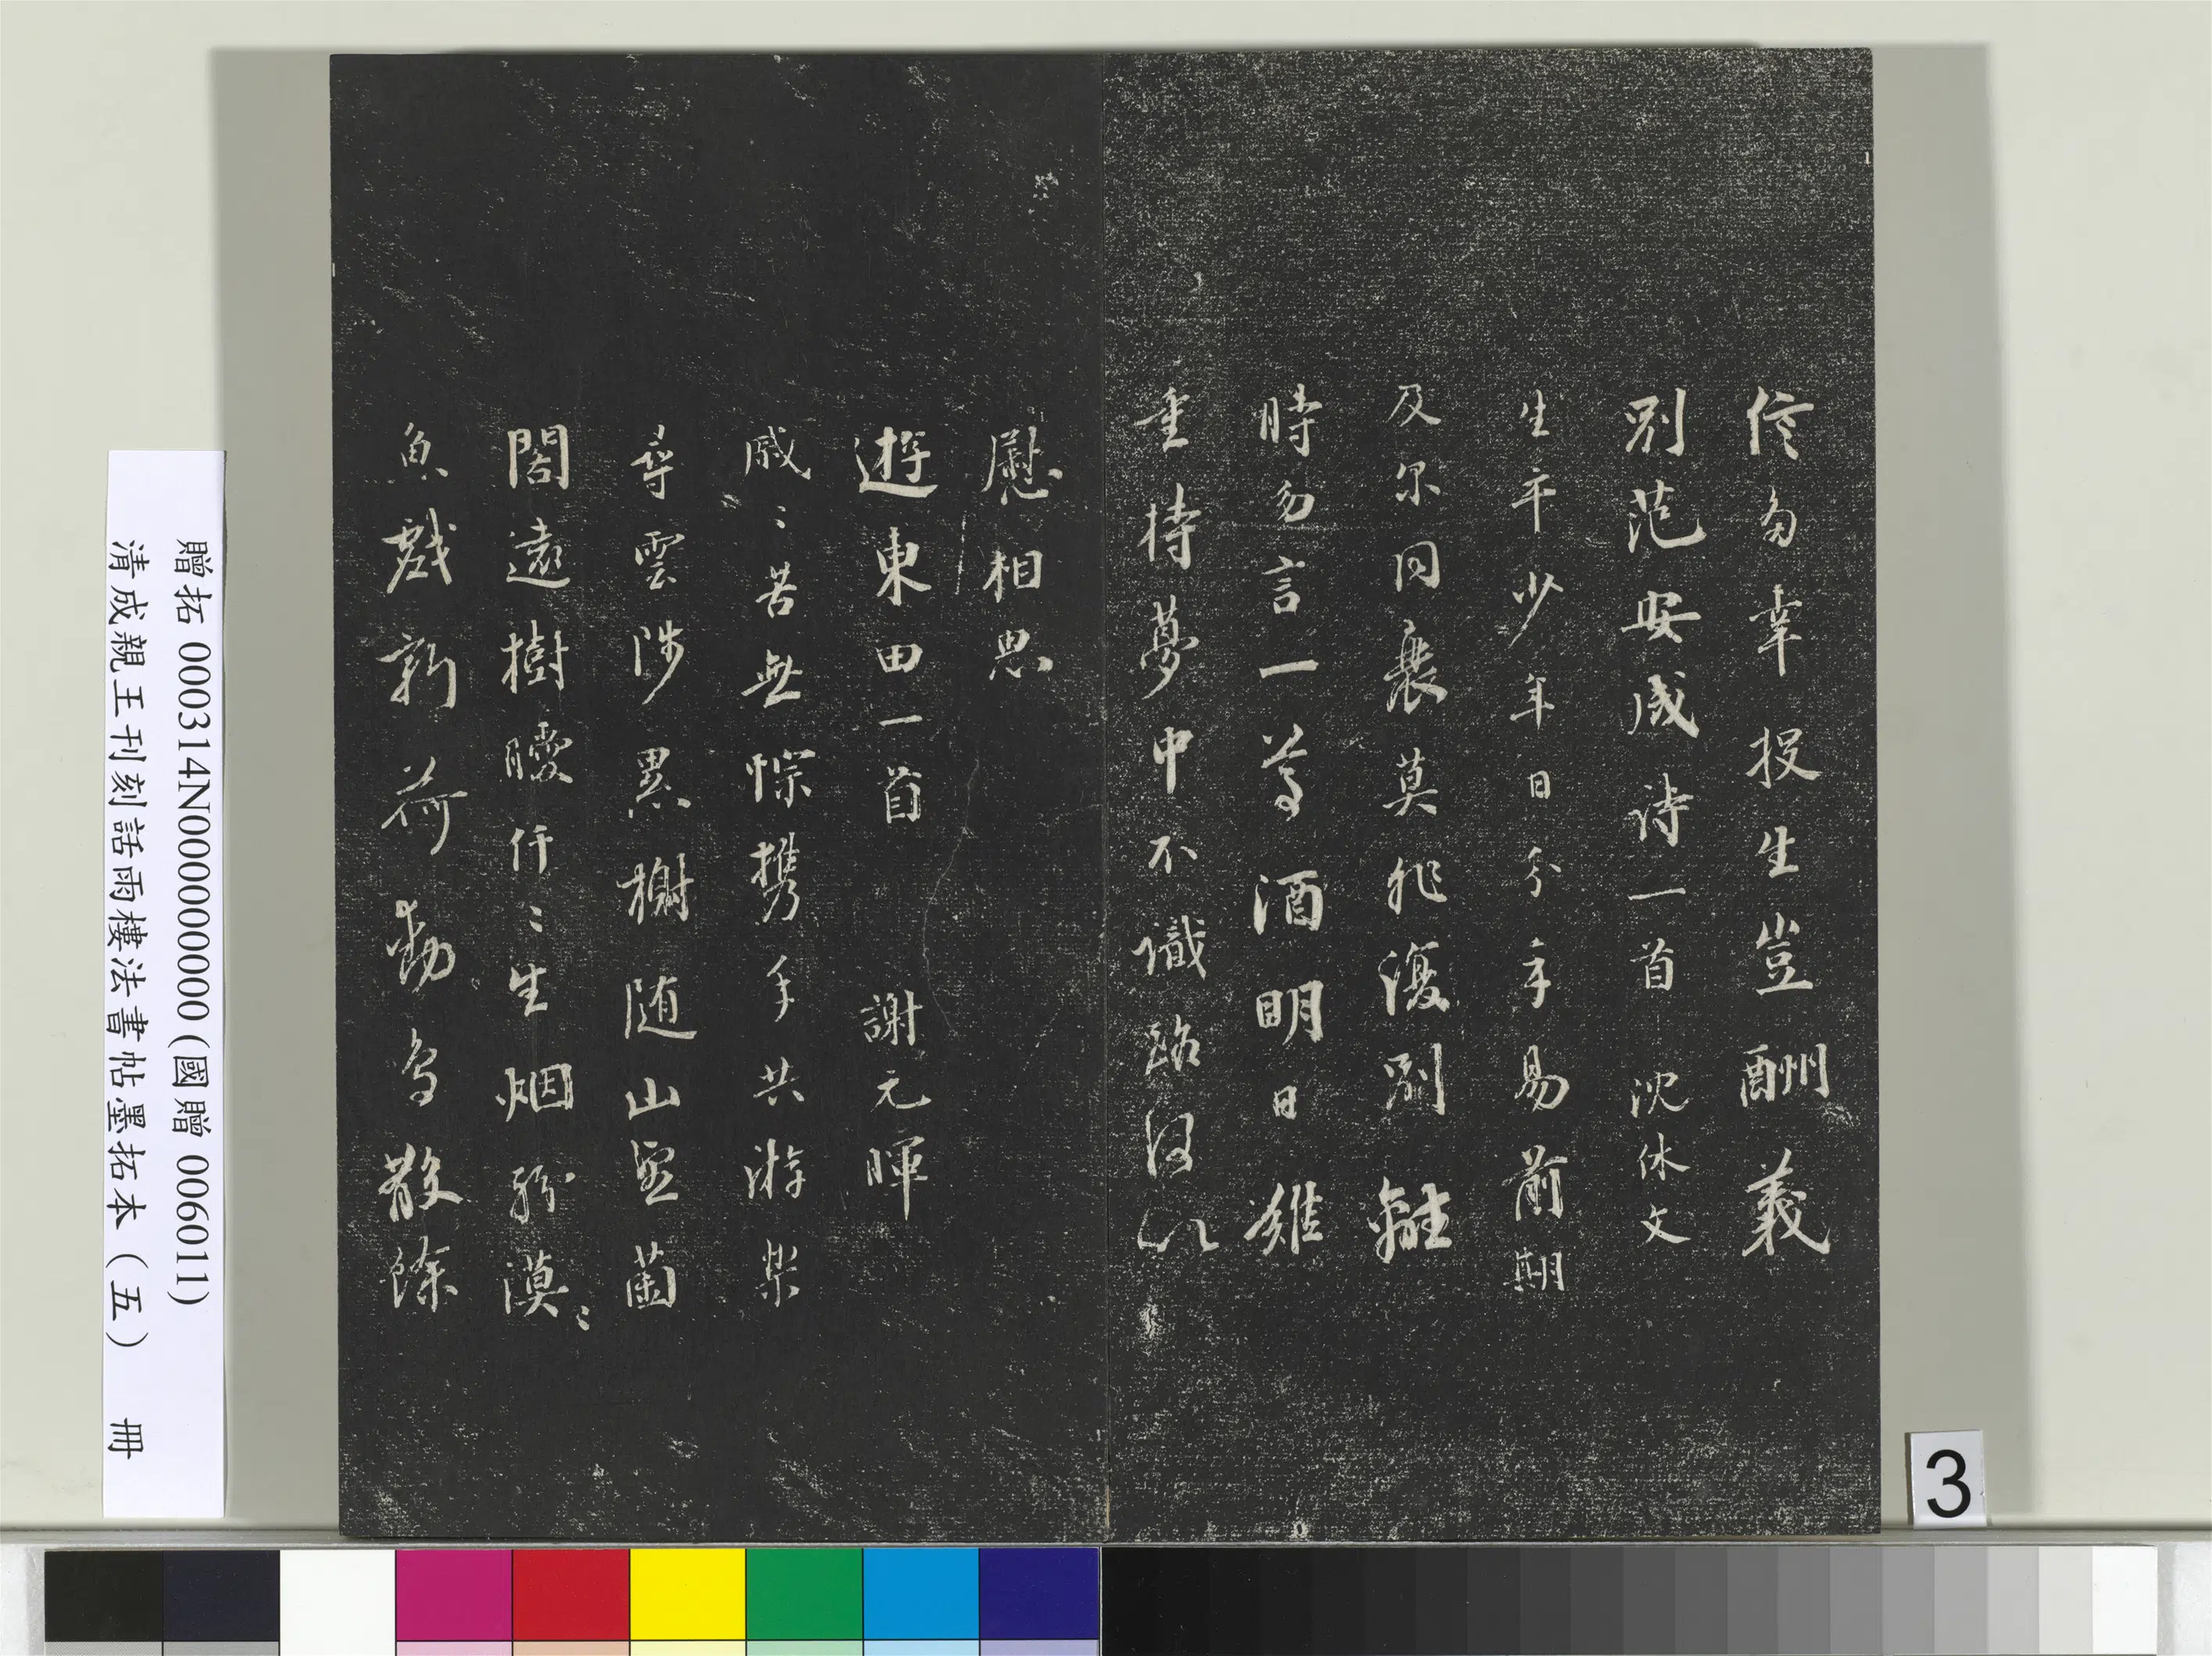 信多幸投生豈酬義
別范安成詩一首 沈休文
生平少年日分手易前期
及尓同衰莫非復別離
時勿言一尊酒明日難
重持夢中不識路何以
慰相思
遊東田一首 謝元暉
戚〻苦無悰携手共游樂
尋雲陟累榭随山望菌
閣遠樹曖仟〻生烟紛漠〻
魚戲新荷動鳥散餘
贈拓 000314N000000000(國贈 006011)
清成親王刊刻話雨樓法書帖墨拓本(五) 冊
3